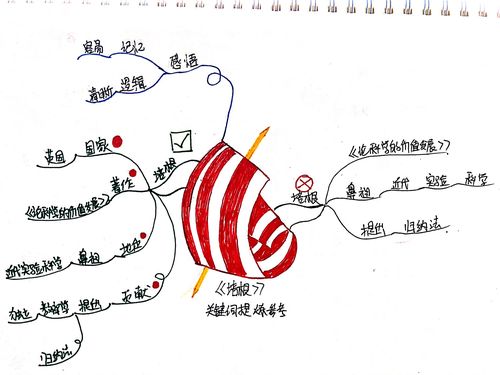 容易 记忆
感悟
清晰 逻辑
培根
英国 国家
著作
《论科学的价值发展》
近代实验科学 鼻祖 地位
独立 教育学 提出 贡献
归纳法
《培根》
关键词提炼思考
培根
《论科学的价值发展》
鼻祖 近代 实验 科学
提出 归纳法